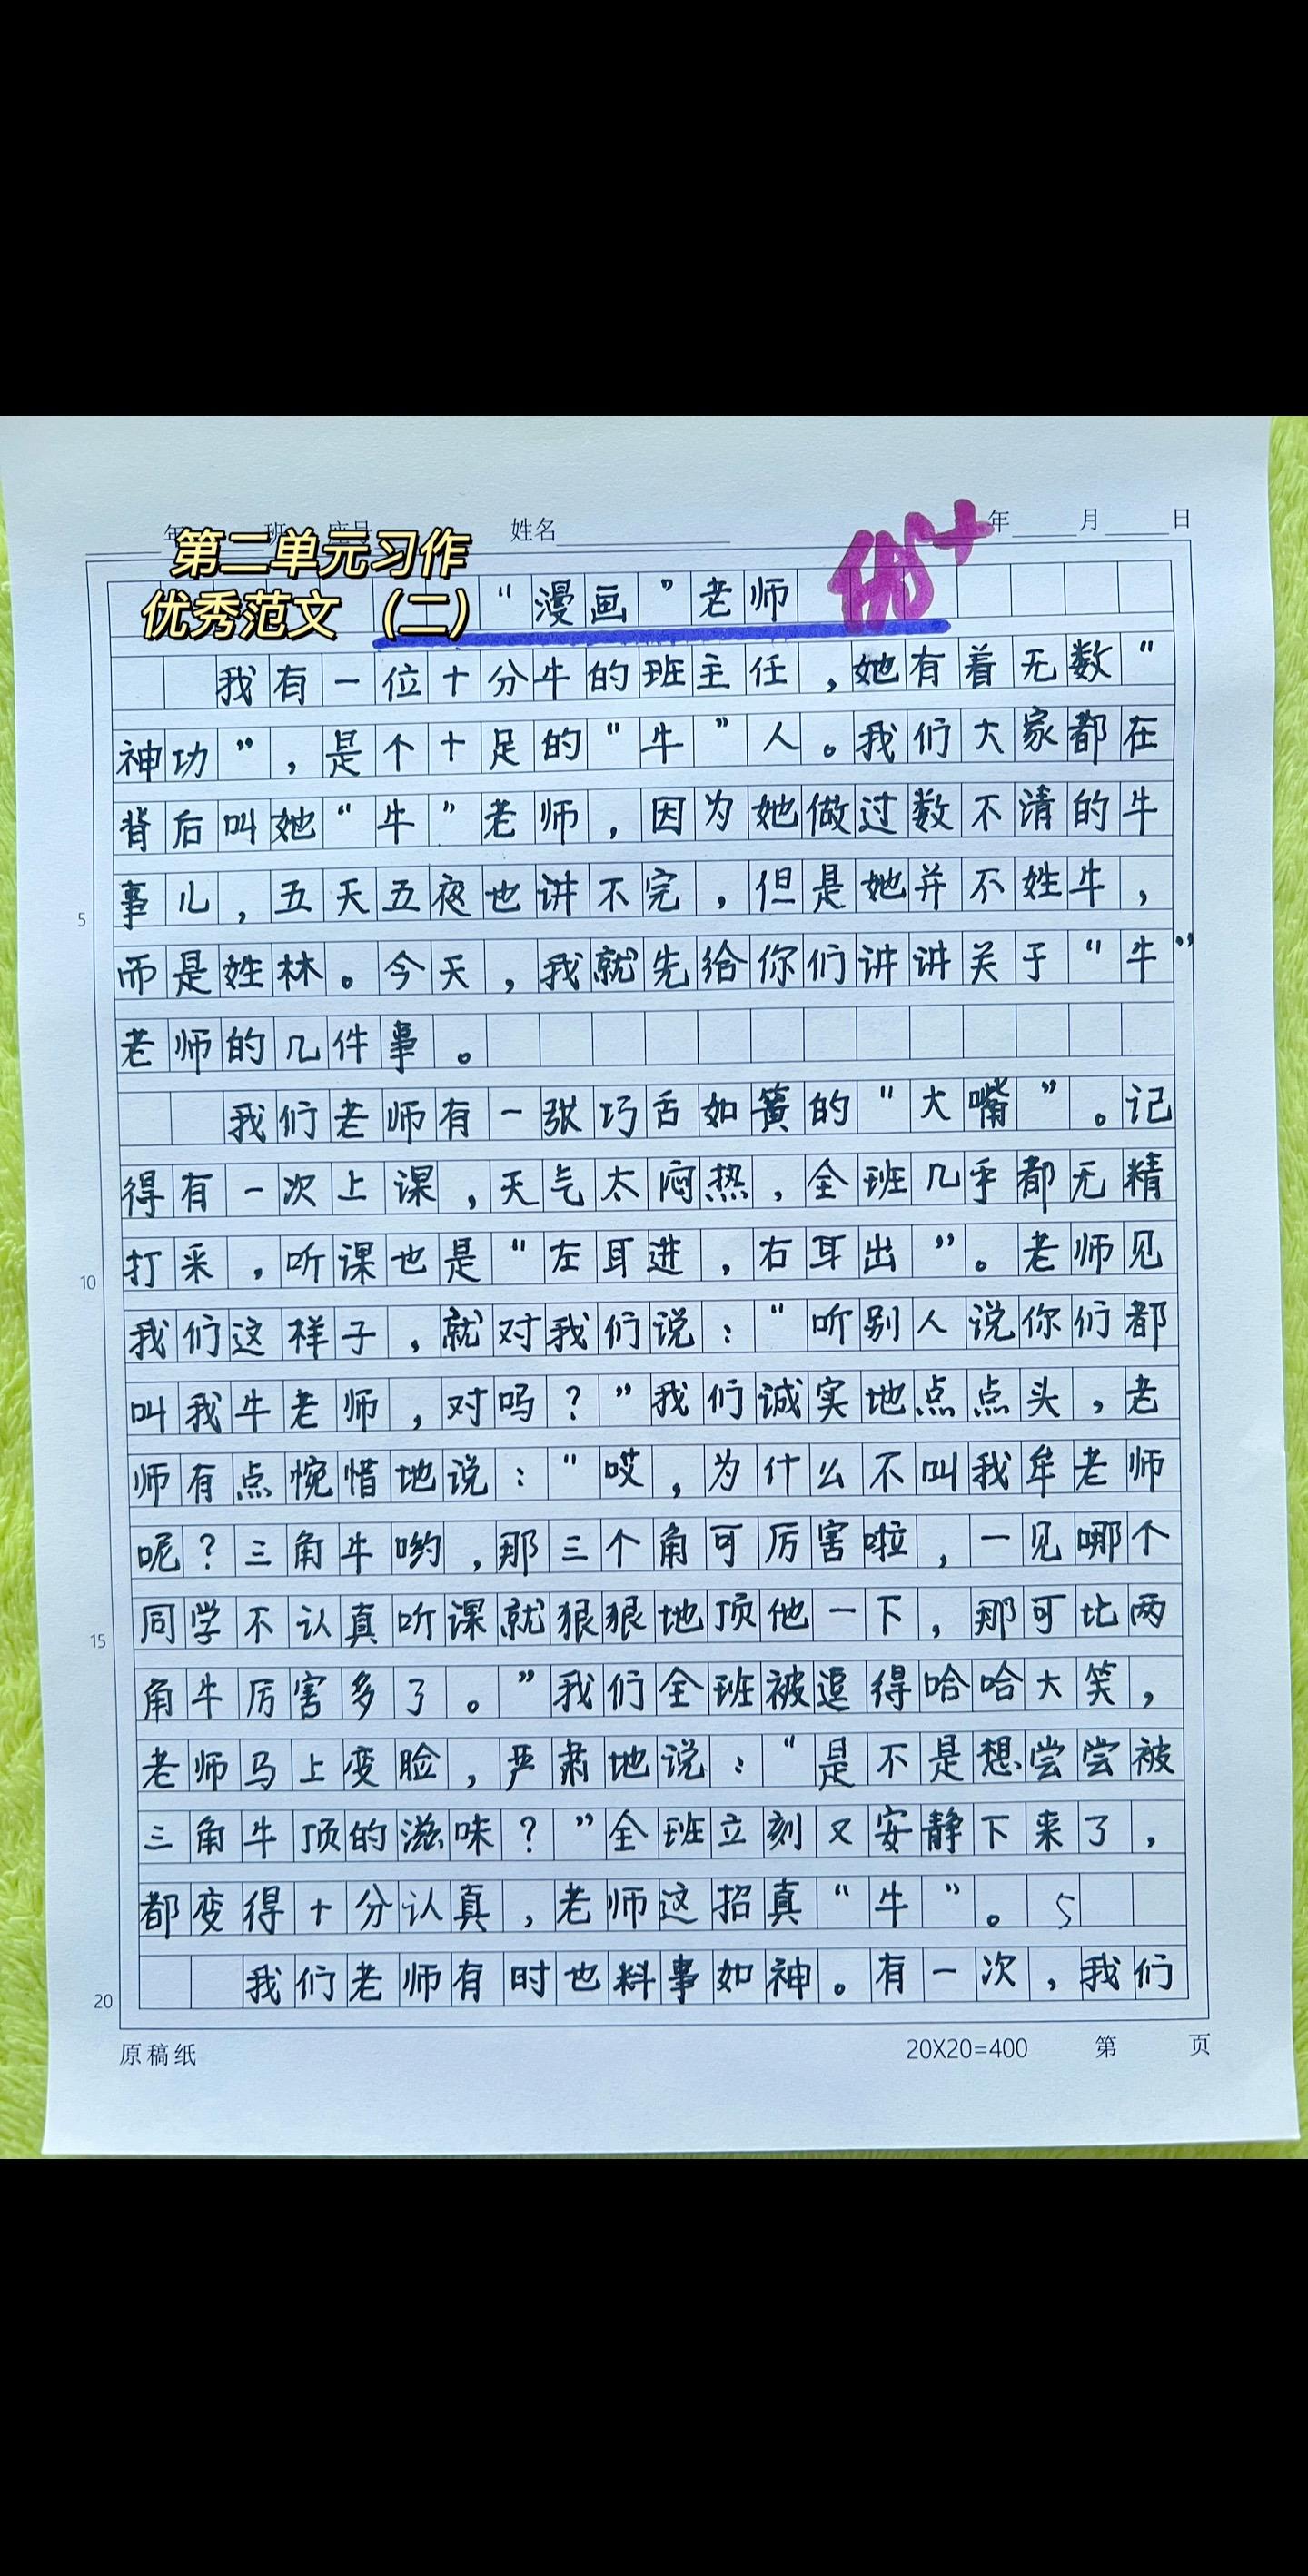 年 班 座号 姓名 年 月 日
第二单元习作
优秀范文（二）
“漫画”老师 优+
我有一位十分牛的班主任，她有着无数“
神功”，是个十足的“牛”人。我们大家都在
背后叫她“牛”老师，因为她做过数不清的牛
事儿，五天五夜也讲不完，但是她并不姓牛，
而是姓林。今天，我就先给你们讲讲关于“牛”
老师的几件事。
我们老师有一张巧舌如簧的“大嘴”。记
得有一次上课，天气太闷热，全班几乎都无精
打采，听课也是“左耳进，右耳出”。老师见
我们这样子，就对我们说：“听别人说你们都
叫我牛老师，对吗？”我们诚实地点点头，老
师有点惋惜地说：“哎，为什么不叫我牟老师
呢？三角牛哟，那三个角可厉害啦，一见哪个
同学不认真听课就狠狠地顶他一下，那可比两
角牛厉害多了。”我们全班被逗得哈哈大笑，
老师马上变脸，严肃地说：“是不是想尝尝被
三角牛顶的滋味？”全班立刻又安静下来了，
都变得十分认真，老师这招真“牛”。5
我们老师有时也料事如神。有一次，我们
5
10
15
20
原稿纸 20X20=400 第 页